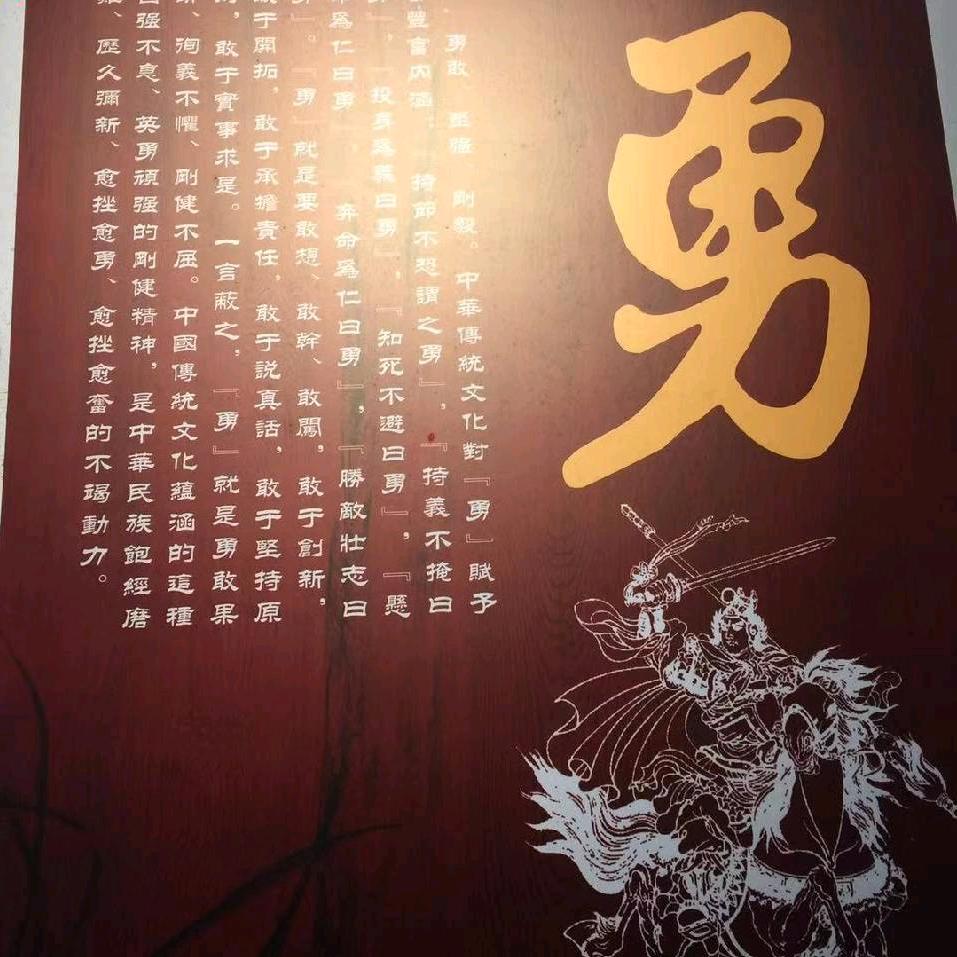 勇
勇敢、堅强、剛毅。中華傳統文化對『勇』賦予
豐富内涵。持節不恐謂之勇』,『持義不掩曰
』,『投身爲義曰勇』,『知死不避曰勇』,『懸
命爲仁曰勇』,奔命爲仁曰勇』,『勝敵壯志曰
勇』。『勇』就是要敢想、敢幹、敢闖,敢于創新,
敢于開拓,敢于承擔責任,敢于説真話,敢于堅持原
則,敢于實事求是。一言蔽之,『勇』就是勇敢果
、洵義不懼、剛健不屈。中國傳統文化藴涵的這種
自强不息、英勇頑强的剛健精神,是中華民族飽經磨
難、歷久彌新、愈挫愈勇、愈挫愈奮的不竭動力。